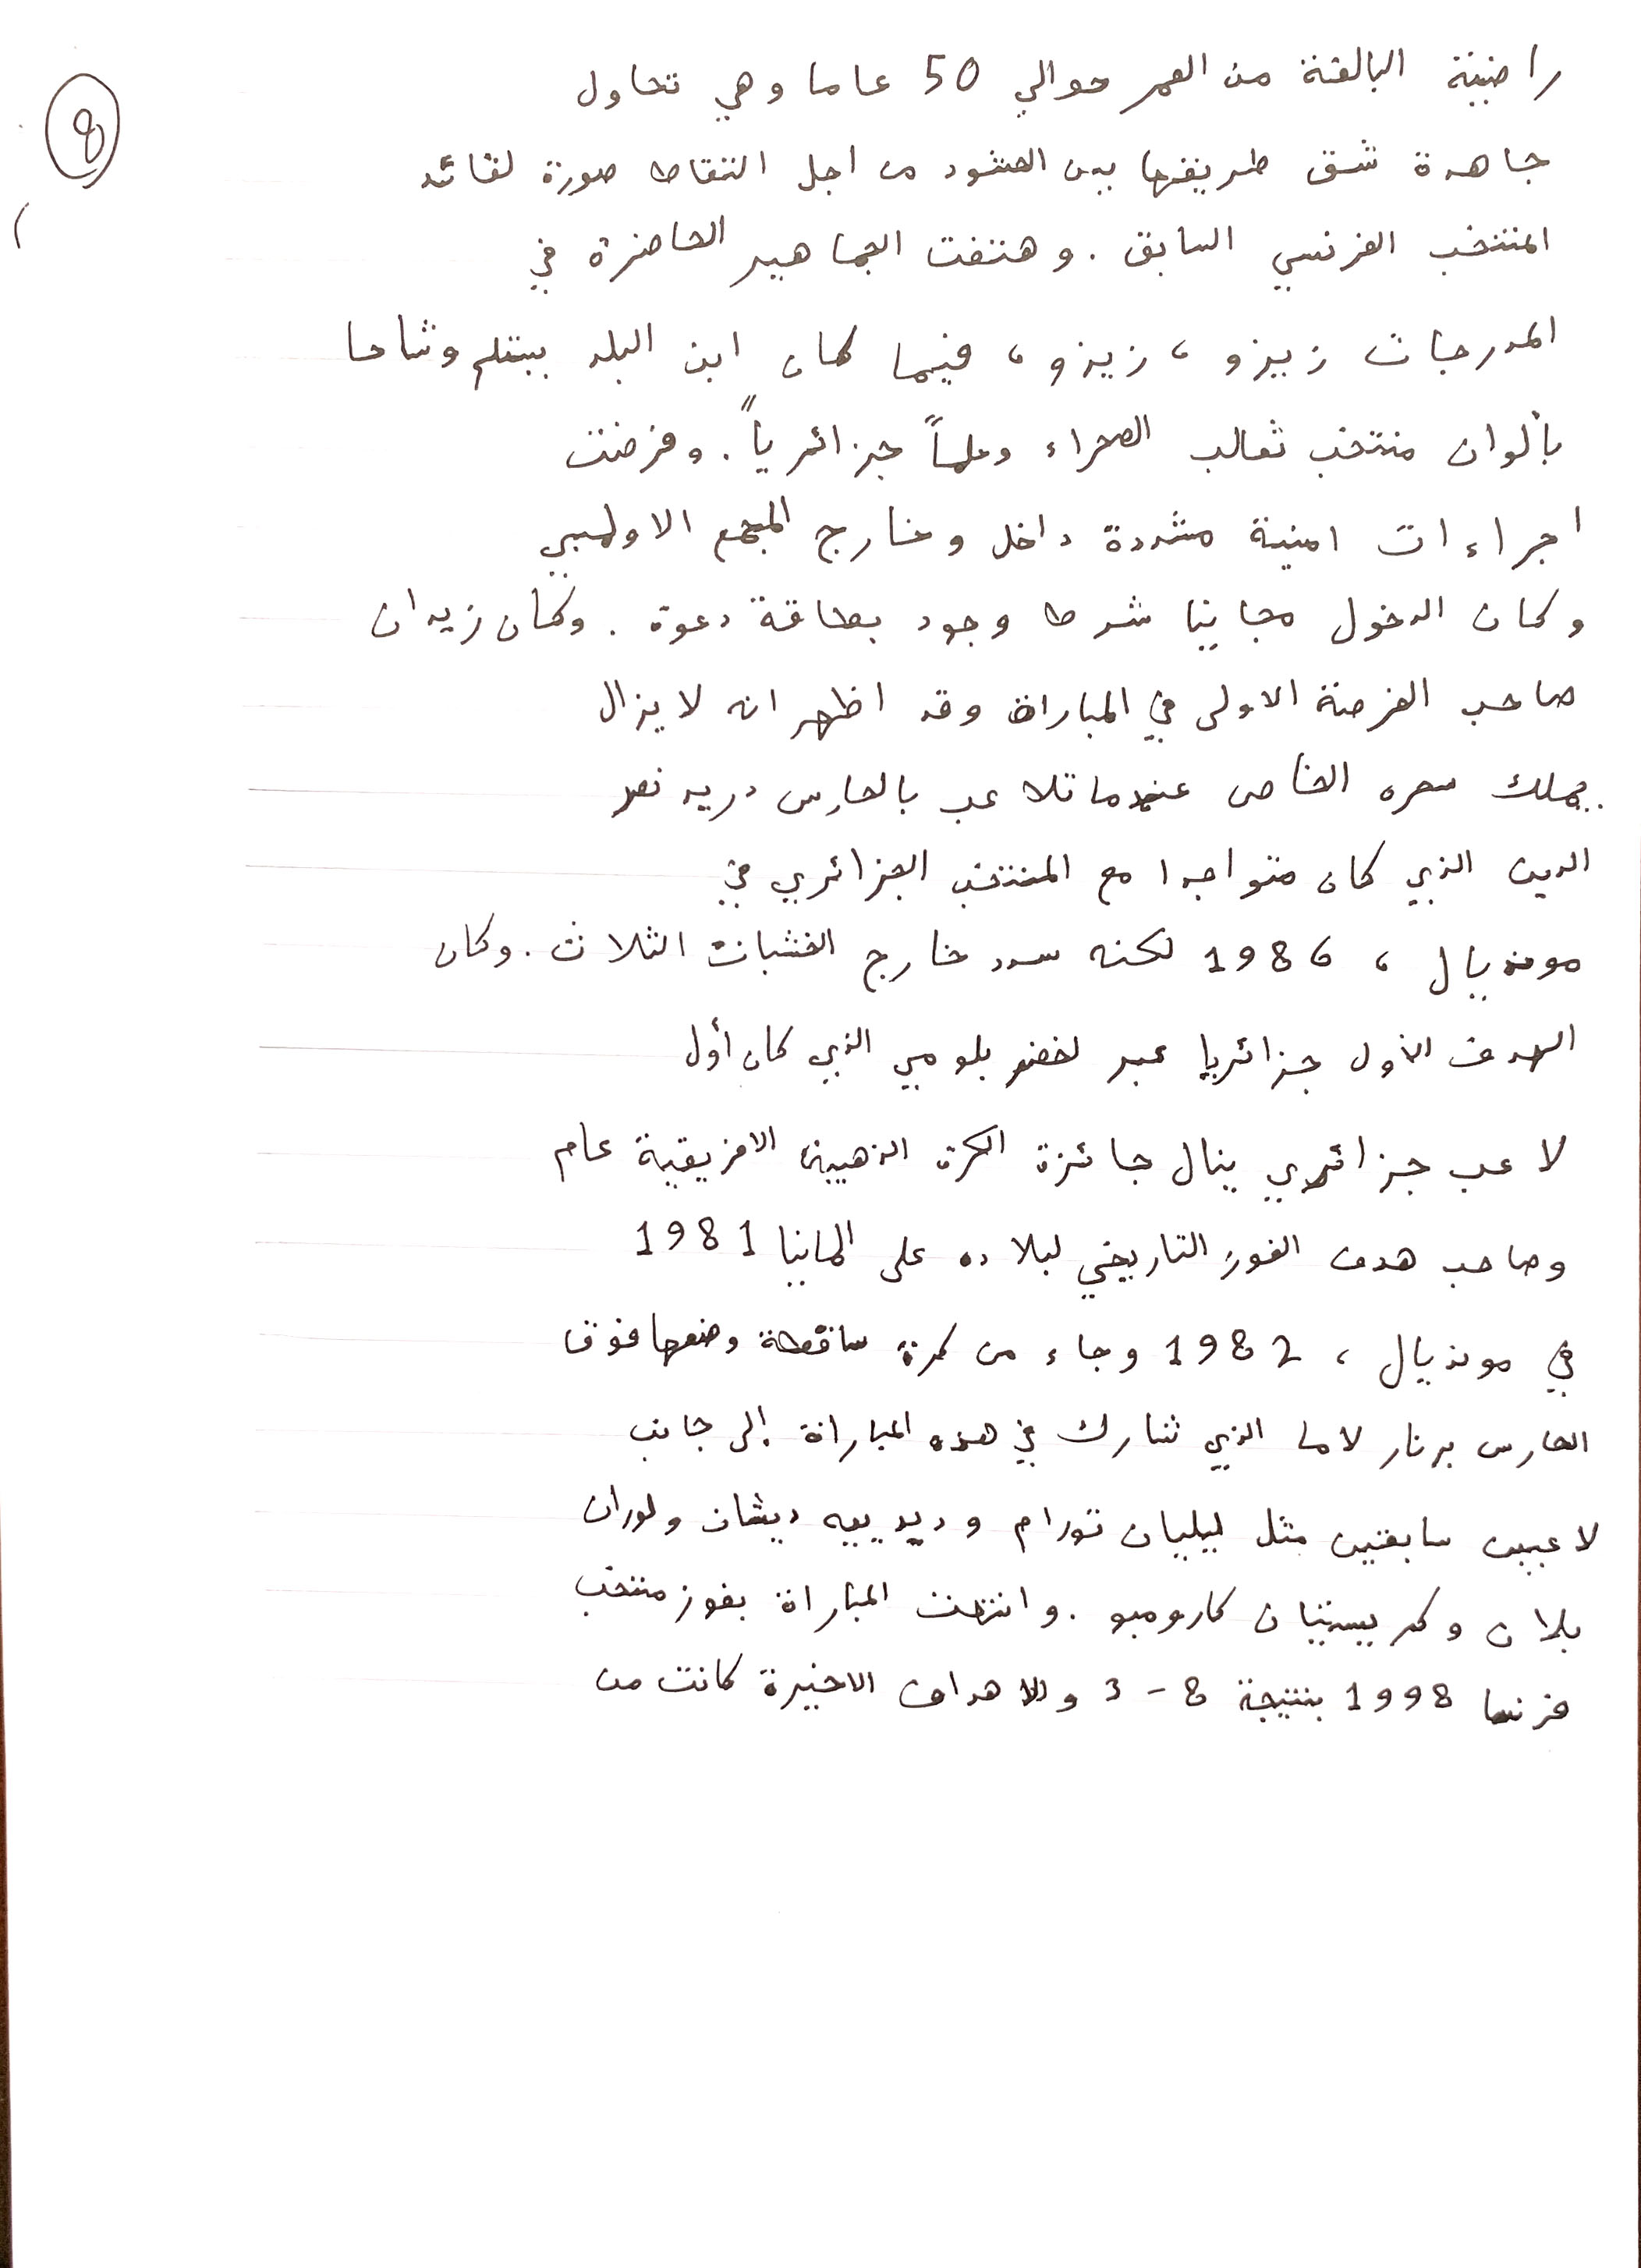 8
راضية البالغة من العمر حوالي 50 عاما وهي تحاول
جاهدة شق طريقها بين الحشود من اجل التقاط صورة لقائد
المنتخب الفرنسي السابق . وهتفت الجماهير الحاضرة في
المدرجات زيزو ، زيزو ، فيما كان ابن البلد يبتلم وشاحا
بألوان منتخب ثعالب الصحراء وعلماً جزائرياً" . وفرضت
اجراءات امنية مشددة داخل وخارج المجمع الاولمبي
وكان الدخول مجانيا شرط وجود بطاقة دعوة . وكان زيدان
صاحب الفرصة الاولى في المباراة وقد اظهر انه لا يزال
يملك سحره الخاص عندما تلاعب بالحارس دريد نصر
الدين الذي كان متواجدا مع المنتخب الجزائري في
مونديال ، 1986 لكنه سدد خارج الخشبات الثلاث . وكان
الهدف الأول جزائريا عبر لخضر بلومي الذي كان أول
لاعب جزائري ينال جائزة الكرة الذهبية الافريقية عام
وصاحب هدف الفوز التاريخي لبلاده على المانيا 1981
في مونديال ، 1982 وجاء من كرة ساقطة وضعها فوق
الحارس برنار لاما الذي شارك في هذه المباراة إلى جانب
لاعبين سابقين مثل ليليان تورام وديدييه ديشان ولوران
بلان وكريستيان كارومبو . وانتهت المباراة بفوز منتخب
فرنسا 1998 بنتيجة 8 - 3 والاهداف الاخيرة كانت من